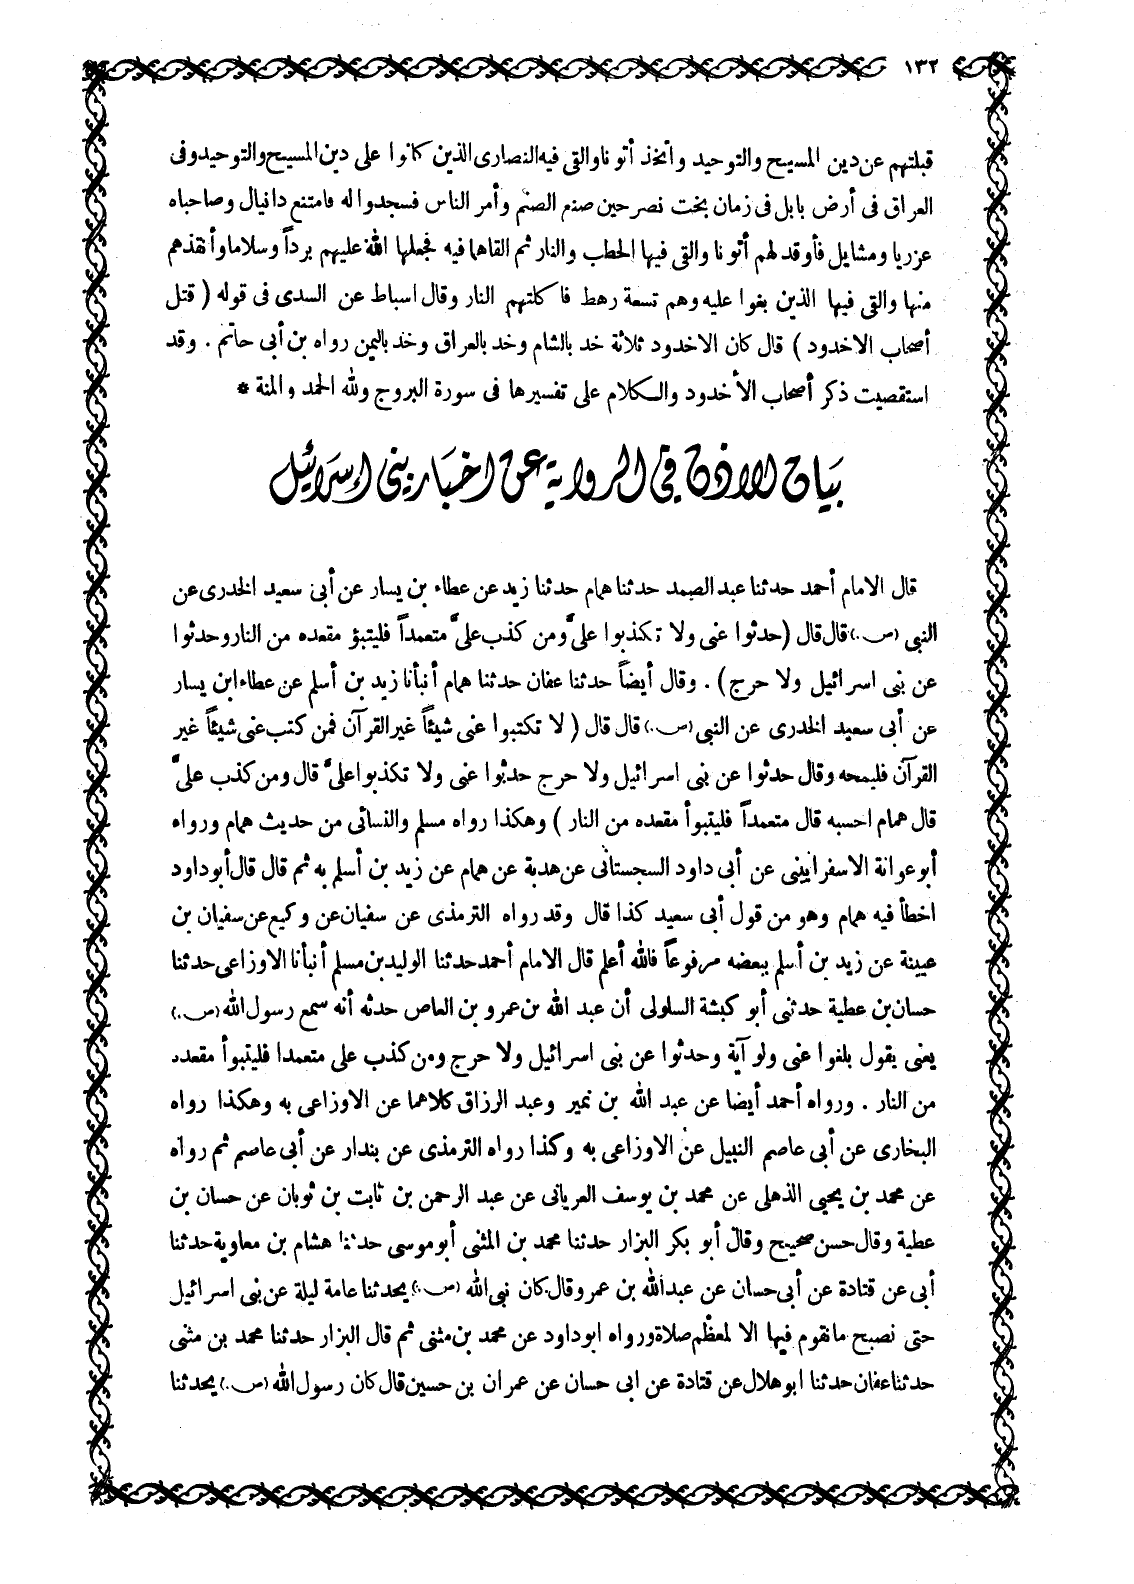 ١٣٢
قبلتهم عن دين المسيح والتوحيد واتخذ أتونا وألقى فيه النصارى الذين كانوا على دين المسيح والتوحيد وفى
العراق فى أرض بابل فى زمان بخت نصر حين صنع الصنم وأمر الناس فسجدوا له فامتنع دانيال وصاحباه
عزريا ومشايل فأوقد لهم أتونا والقى فيها الحطب والنار ثم القاهما فيه فجعلها الله عليهم برداً وسلاما وأنقذهم
منها والقى فيها الذين بغوا عليه وهم تسعة رهط فاكلتهم النار وقال اسباط عن السدى فى قوله ( قتل
أصحاب الاخدود ) قال كان الاخدود ثلاثة خد بالشام وخد بالعراق وخد باليمن رواه بن أبى حاتم . وقد
استقصيت ذكر أصحاب الأخدود والكلام على تفسيرها فى سورة البروج ولله الحمد والمنة *
بيان الاذن في الرواية عن اخبار بني إسرائيل
قال الامام أحمد حدثنا عبد الصمد حدثنا همام حدثنا زيد عن عطاء بن يسار عن أبى سعيد الخدرى عن
النبى (ص.) قال قال (حدثوا عنى ولا تكذبوا علىَّ ومن كذب علىَّ متعمداً فليتبؤ مقعده من النار وحدثوا
عن بنى اسرائيل ولا حرج) . وقال أيضاً حدثنا عفان حدثنا همام أنبأنا زيد بن أسلم عن عطاء ابن يسار
عن أبى سعيد الخدرى عن النبى (ص.) قال قال ( لا تكتبوا عنى شيئاً غير القرآن فمن كتب عنى شيئاً غير
القرآن فليمحه وقال حدثوا عن بنى اسرائيل ولا حرج حدثوا عنى ولا تكذبوا علىَّ قال ومن كذب علىَّ
قال همام احسبه قال متعمداً فليتبوأ مقعده من النار ) وهكذا رواه مسلم والنسائى من حديث همام ورواه
أبو عوانة الاسفرايينى عن أبى داود السجستانى عن هدبة عن همام عن زيد بن أسلم به ثم قال قال أبو داود
اخطأ فيه همام وهو من قول أبى سعيد كذا قال وقد رواه الترمذى عن سفيان عن وكيع عن سفيان بن
عيينة عن زيد بن أسلم ببعضه مرفوعاً فالله أعلم قال الامام أحمد حدثنا الوليد بن مسلم أنبأنا الاوزاعى حدثنا
حسان بن عطية حدثنى أبو كبشة السلولى أن عبد الله بن عمرو بن العاص حدثه أنه سمع رسول الله (ص.)
يعنى يقول بلغوا عنى ولو آية وحدثوا عن بنى اسرائيل ولا حرج ومن كذب على متعمدا فليتبوأ مقعده
من النار . ورواه أحمد أيضا عن عبد الله بن نمير وعبد الرزاق كلاهما عن الاوزاعى به وهكذا رواه
البخارى عن أبى عاصم النبيل عن الاوزاعى به وكذا رواه الترمذى عن بندار عن أبى عاصم ثم رواه
عن محمد بن يحيى الذهلى عن محمد بن يوسف العريانى عن عبد الرحمن بن ثابت بن ثوبان عن حسان بن
عطية وقال حسن صحيح وقال أبو بكر البزار حدثنا محمد بن المثنى أبو موسى حدثنا هشام بن معاوية حدثنا
أبى عن قتادة عن أبى حسان عن عبد الله بن عمرو قال كان نبى الله (ص.) يحدثنا عامة ليلة عن بنى اسرائيل
حتى نصبح ما نقوم فيها الا لمعظم صلاة ورواه ابو داود عن محمد بن مثنى ثم قال البزار حدثنا محمد بن مثنى
حدثنا عفان حدثنا ابو هلال عن قتادة عن ابى حسان عن عمران بن حسين قال كان رسول الله (ص.) يحدثنا